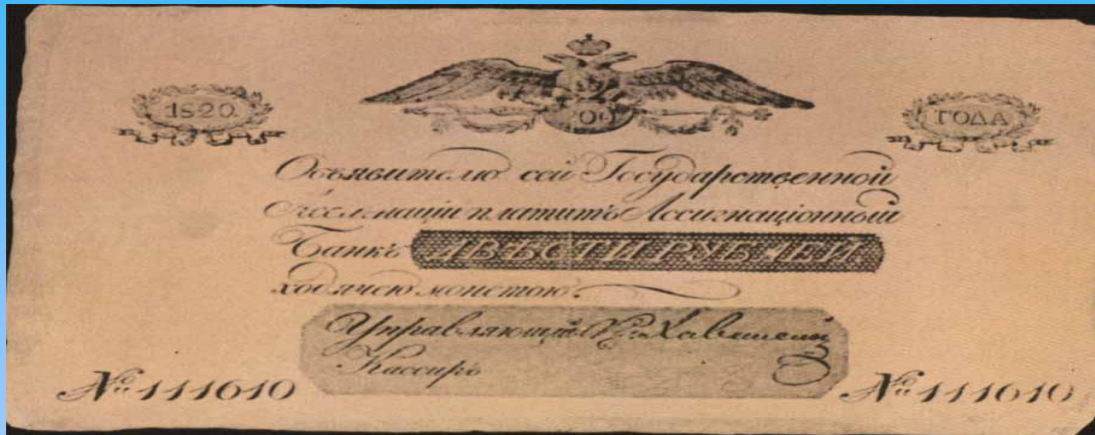 1820.
200
ГОДА
Объявителю сей Государственной
Ассигнаціи платитъ Ассигнаціонный
Банкъ ДВѢСТИ РУБЛЕЙ
ходячею монетою.
Управляющій Кн. Хованскій
Кассиръ
№ 111610
№ 111610